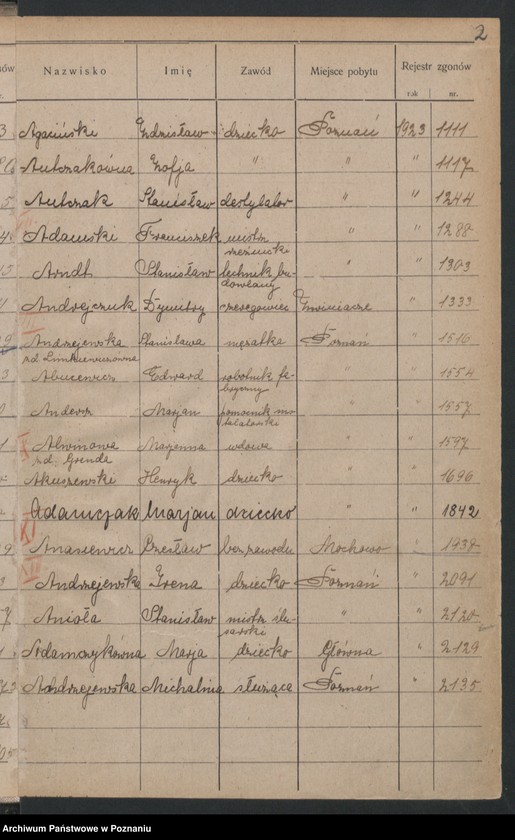 2
Nazwisko Imię Zawód Miejsce pobytu Rejestr zgonów
rok nr.
Agaciński Zdzisław dziecko Poznań 1923 1111
Antczakówna Zofja " " " 1117
Antczak Stanisław destylator " " 1244
Adamski Franciszek mistrz " " 1288
rzeźnicki
Arndt Stanisław technik bu- " " 1303
dowlany
Andrejczuk Dymitry czeregowiec 1333
Andrzejewska Stanisława mężatka Poznań " 1516
zd.
Abucewicz Edward robotnik fa- " " 1554
bryczny
Anders Marjan pomocnik " " 1557
Marjanna wdowa " " 1597
zd. Grenda
Akuszewski Henryk dziecko " " 1696
Adamczak Marjan dziecko " " 1842
XI
Anasiewicz Bzesław bez zawodu Mochowo " 1938
XII
Andrzejewska Irena dziecko Poznań " 2091
Anioła Stanisław mistrz ślu- " " 2120
sarski
Adamczykówna Marja dziecko Główna " 2129
Andrzejewska Michalina służąca Poznań " 2135
Archiwum Państwowe w Poznaniu